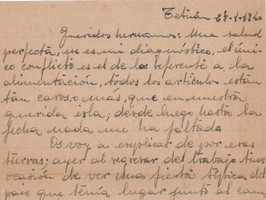 Tetuán 27-1-1940
Queridos hermanos: Una salud
perfecta, ese es mi diagnóstico, el úni
co conflicto es el de lo referente a la
alimentación, todos los artículos están
tan caros o más, que en nuestra
querida isla; desde luego hasta la
fecha nada me ha faltado.
Os voy a explicar de por esas
tierras; ayer al regresar del trabajo tuve
ocasión de ver una fiesta típica del
país que tenía lugar junto al cam